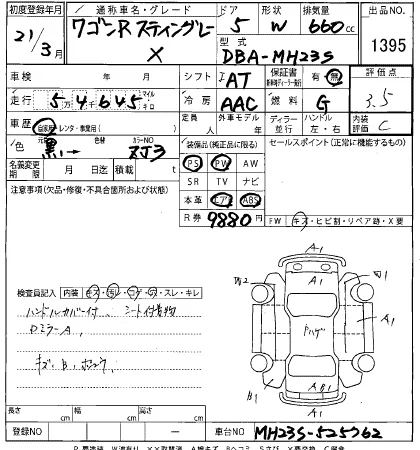 初度登録年月 通称車名・グレード ドア 形状 排気量 出品NO
21/3月 ワゴンR スティングレー X 5 W 660cc 1395
型式 DBA-MH23S
車検 年 月 シフト IAT 保証書 有・無 評価点
走行 5万4千645 マイル キロ 冷房 AAC 燃料 G 3.5
車歴 自家用・レンタ・事業用( ) 定員 人 外車モデル 年 ディーラー 並行 ハンドル 左・右 内装評価 C
色 元色 黒 色替 カラーNO ZJ3 装備品(純正品に限る) セールスポイント(正常に機能するもの)
名義変更期限 月 日迄 積載 PS PW AW
注意事項(欠品・修復・不具合箇所および状態) SR TV ナビ
本革 エアB ABS
R券 9880円 FW キズ・ヒビ割・リペア跡・X要
A1
W2
A1
検査員記入 内装 キズ・汚レ・コゲ・穴・スレ・キレ
ハンドルカバー付 シート付着物
Dミラー A
キズ、B、ボコウ
Pハゲ
A1
B1
AB1
A1
長さ cm 幅 cm 高さ cm
登録NO ー 車台NO MH23S-525762